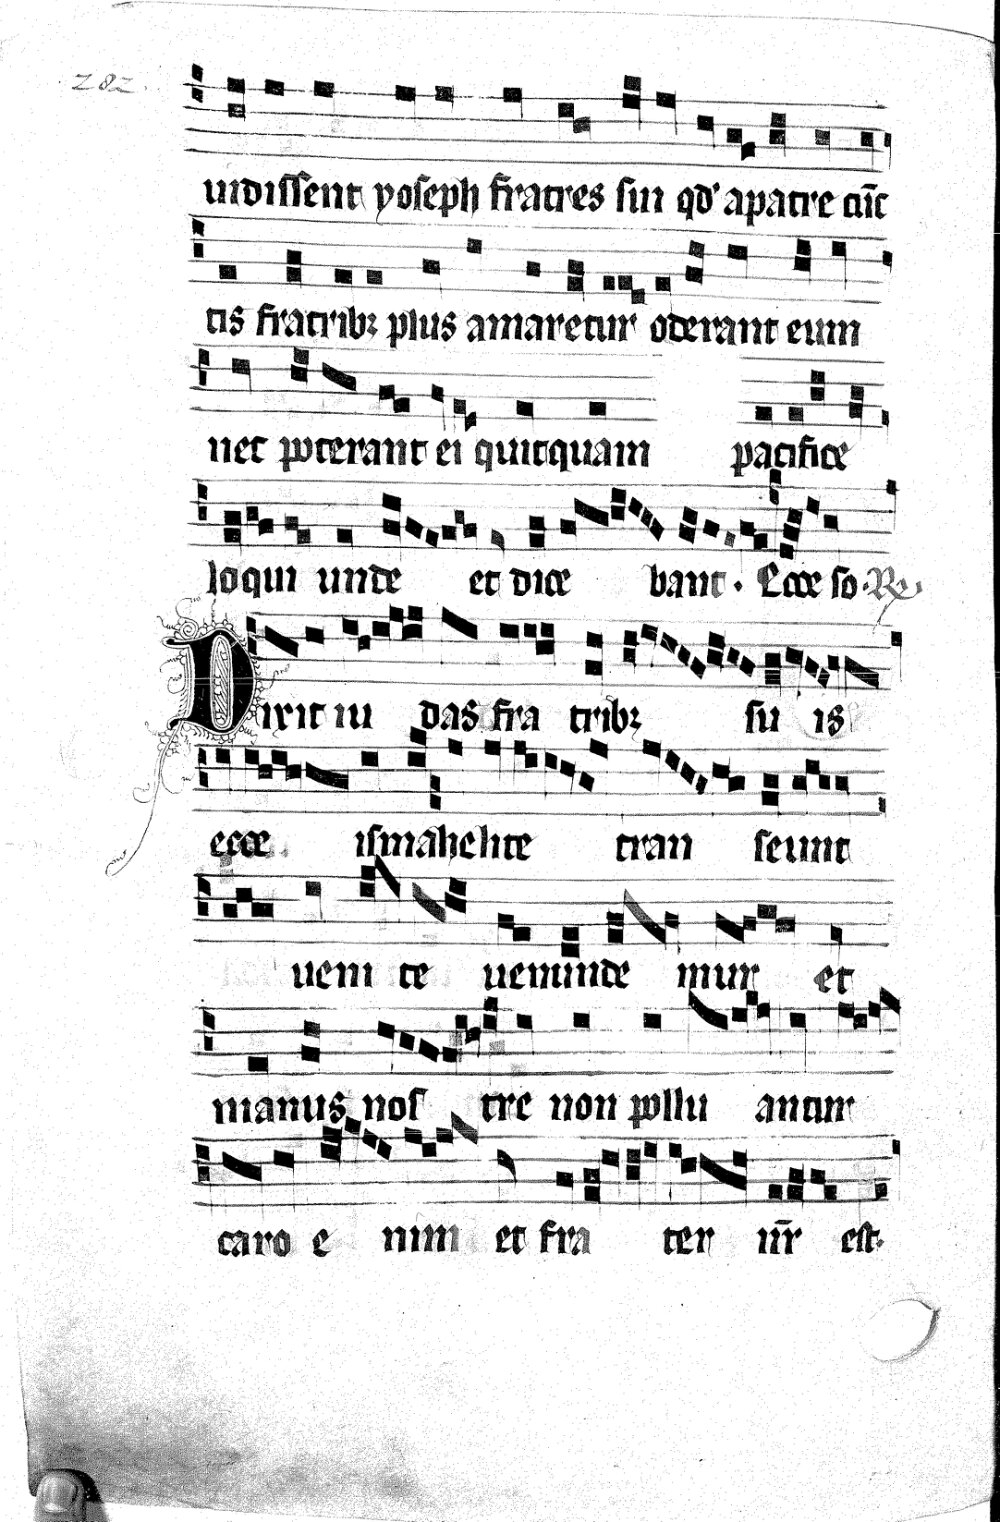 282.
uidissent yoseph fratres sui qd' apatre cūc
tis fratribꝫ plus amaretur oderant eum
nec poterant ei quicquam pacifice
loqui unde et dice bant. Ecce so. ℟.
Dixit iu das fra tribꝫ su is
ecce ismahelite tran seunt
ueni te uenunde mur et
manus nos tre non pollu antur
caro e nim et fra ter nr̄ est.